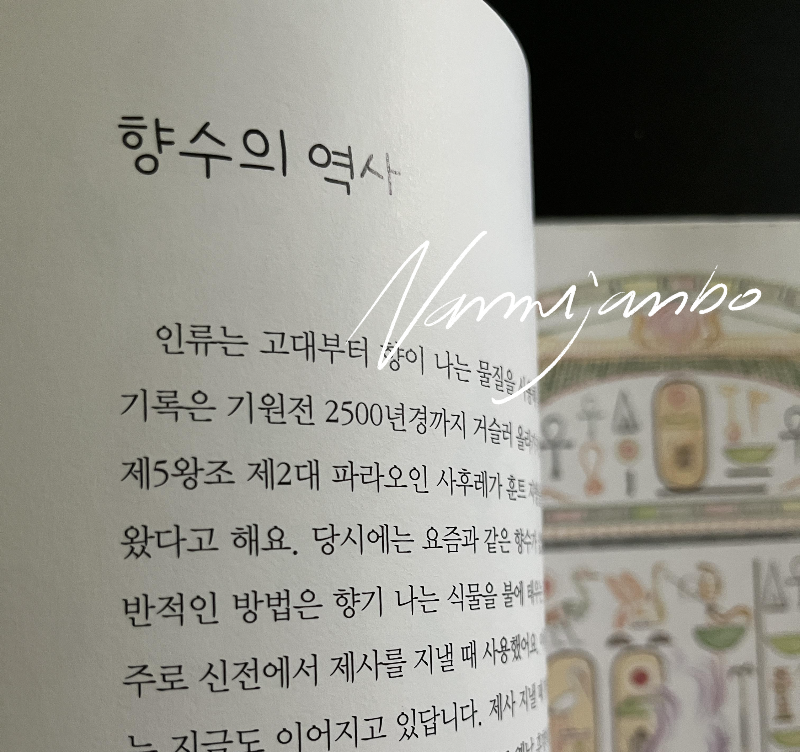 향수의 역사
Nammijanbo
인류는 고대부터 향이 나는 물질을
기록은 기원전 2500년경까지 거슬러
제5왕조 제2대 파라오인 사후레가 훈트
왔다고 해요. 당시에는 요즘과 같은 향수가
반적인 방법은 향기 나는 식물을 불에 태우는
주로 신전에서 제사를 지낼 때 사용했어요.
는 지금도 이어지고 있답니다. 제사 지낼 때